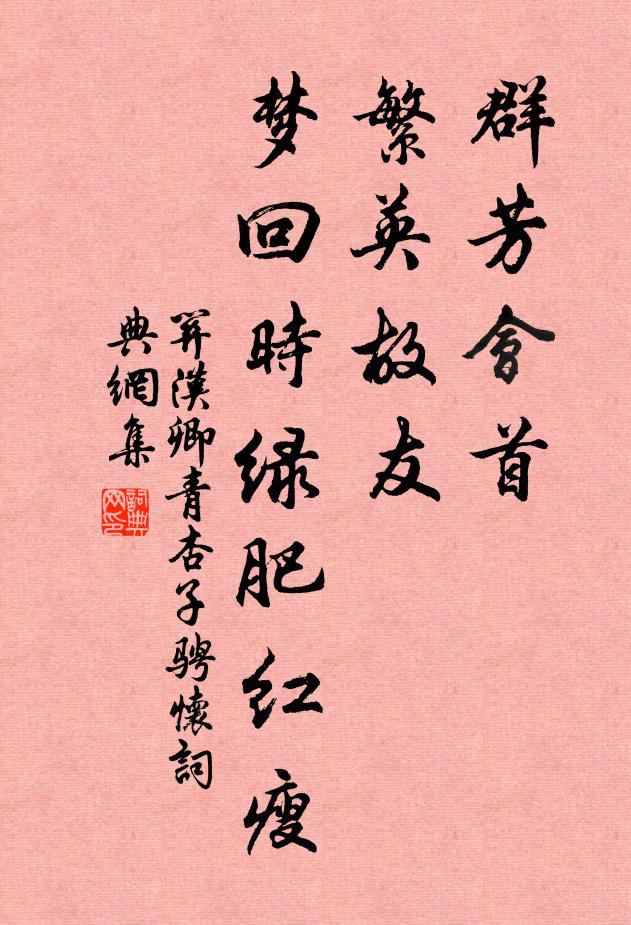 群芳會首
繁英故友
梦回時绿肥红瘦
関漢卿青杏子騁懷詞
典網集
詞典
网印